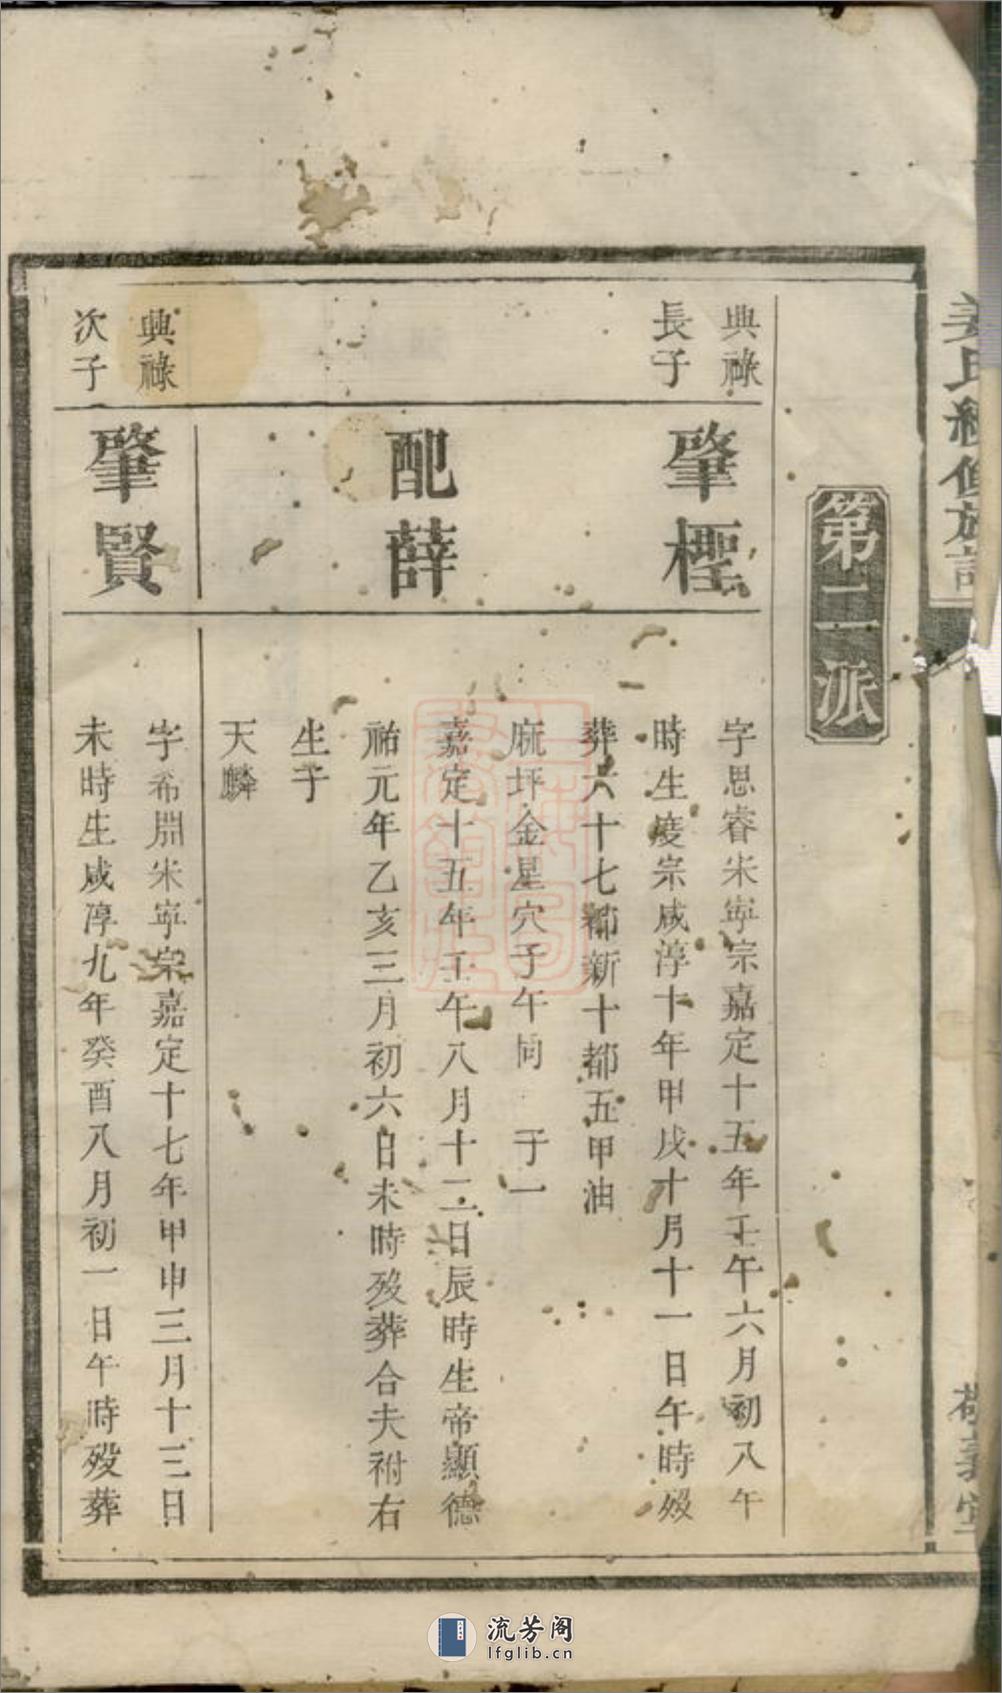 姜氏續修族譜
敬義堂
第二派
典祿
長子
肇檉
字思睿宋寧宗嘉定十五年壬午六月初八午
時生度宗咸淳十年甲戌十月十一日午時歿
葬六十七都新十都五甲油
麻坪金星穴子午向 子一
配薛
嘉定十五年壬午八月十二日辰時生帝顯德
祐元年乙亥三月初六日未時歿葬合夫祔右
生子
天麟
典祿
次子
肇賢
字希開宋寧宗嘉定十七年甲申三月十三日
未時生咸淳九年癸酉八月初一日午時歿葬
流芳阁
lfglib.cn